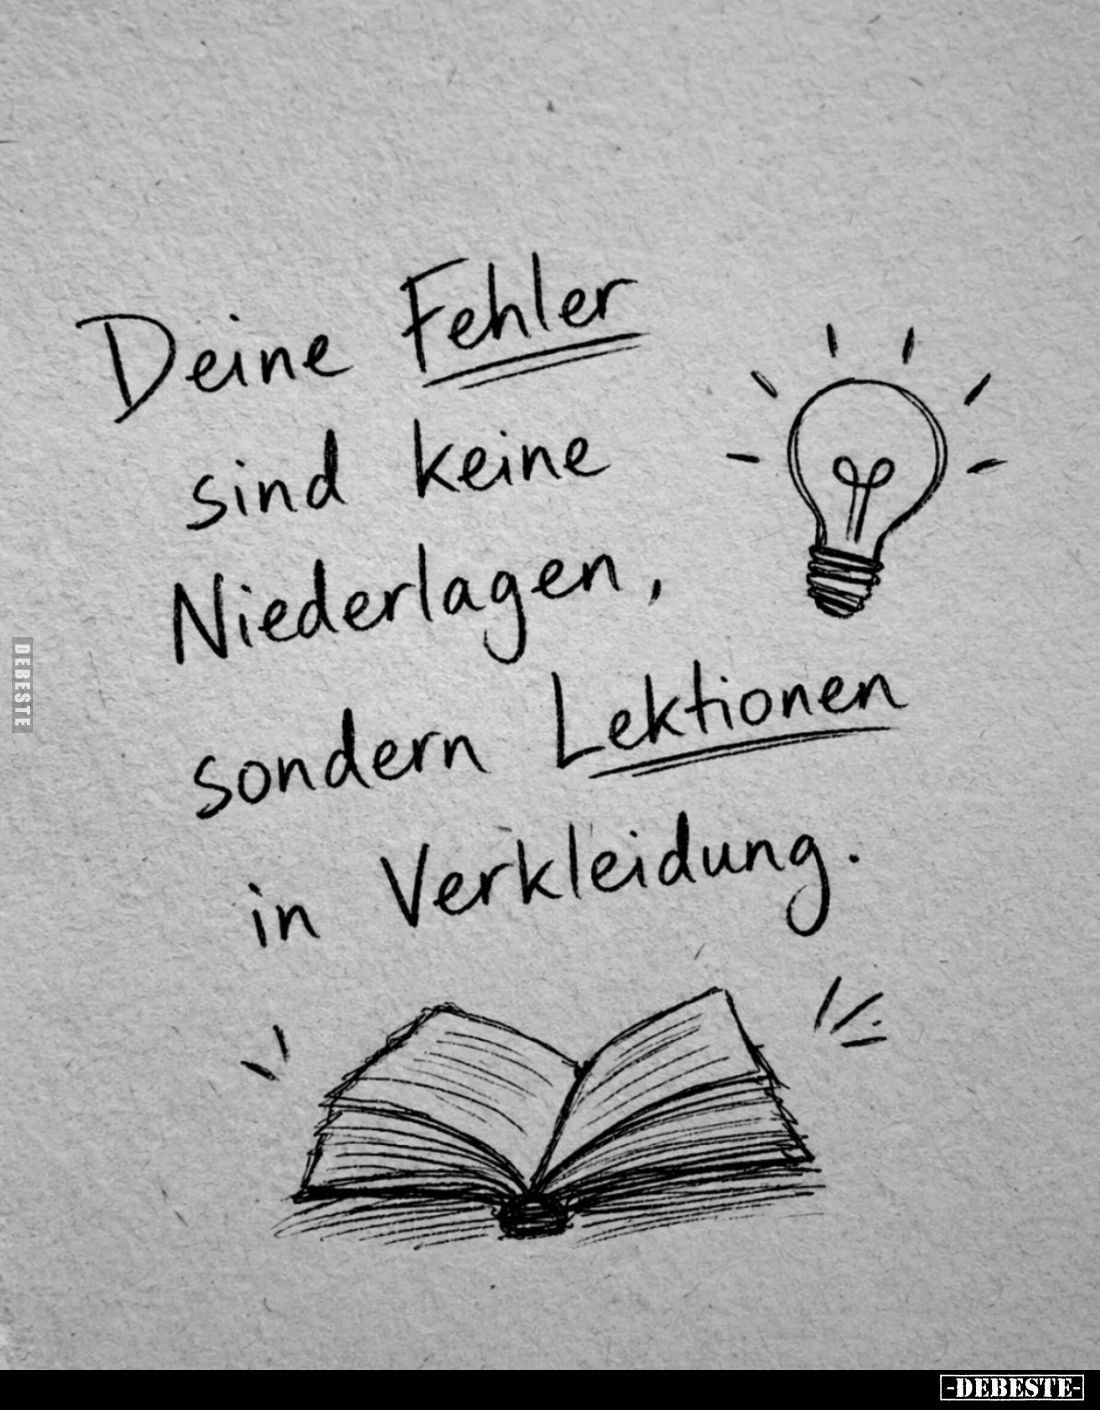 Deine Fehler
sind keine
Niederlagen,
sondern Lektionen
in Verkleidung.
DEBESTE
-DEBESTE-